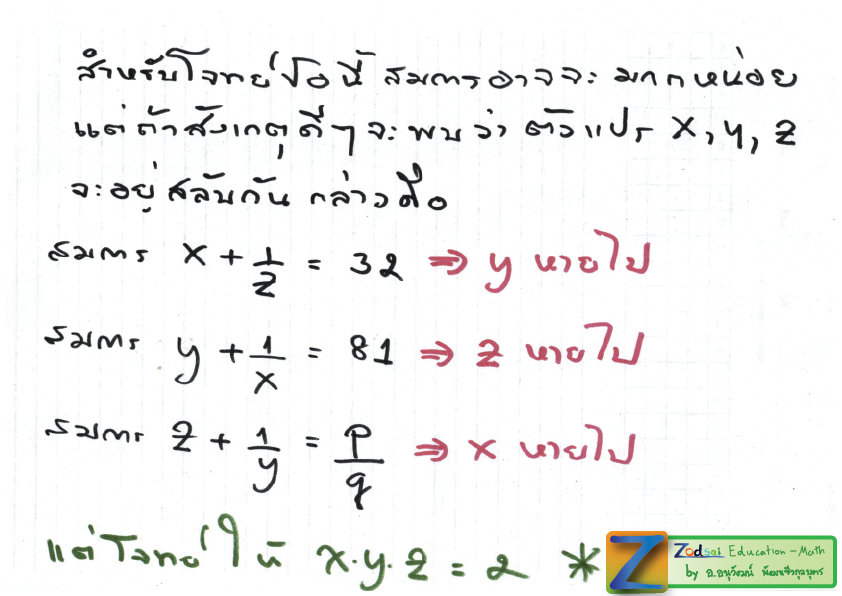 สำหรับโจทย์ข้อนี้ สมการอาจจะ มากหน่อย
แต่ถ้าสังเกตุดีๆ จะพบว่า ตัวแปร x, y, z
จะอยู่สลับกัน กล่าวคือ
สมการ x + 1/z = 32 ⇒ y หายไป
สมการ y + 1/x = 81 ⇒ z หายไป
สมการ z + 1/y = p/q ⇒ x หายไป
แต่โจทย์ให้ x·y·z = 2 *
Zodsai Education - Math
by อ.อนุวัฒน์